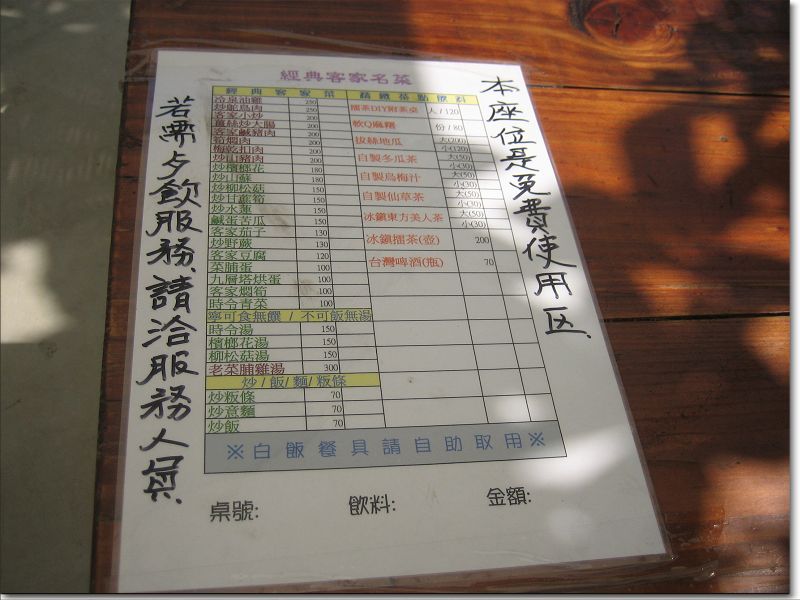 經典客家名菜
經典客家菜 精緻茶點飲料
冷泉油雞 250
炒鴕鳥肉 250
客家小炒 200
薑絲炒大腸 200
客家鹹豬肉 200
筍燜肉 200
梅乾扣肉 200
炒山豬肉 200
炒檳榔花 180
炒山蘇 180
炒柳松菇 150
炒甘蔗筍 150
炒水蓮 150
鹹蛋苦瓜 150
客家茄子 130
炒野蕨 130
客家豆腐 120
菜脯蛋 100
九層塔烘蛋 100
客家燜筍 100
時令青菜 100
寧可食無饌 / 不可飯無湯
時令湯 150
檳榔花湯 150
柳松菇湯 150
老菜脯雞湯 300
炒/飯/麵/粄條
炒粄條 70
炒意麵 70
炒飯 70
擂茶DIY附茶桌 人/120
軟Q麻糬 份/80
拔絲地瓜 大(200) 小(120)
自製冬瓜茶 大(50) 小(30)
自製烏梅汁 大(50) 小(30)
自製仙草茶 大(50) 小(30)
冰鎮東方美人茶 大(50) 小(30)
冰鎮擂茶(壺) 200
台灣啤酒(瓶) 70
※白飯餐具請自助取用※
桌號: 飲料: 金額:
本座位是免費使用区.
若需夕飲服務.請洽服務人員.